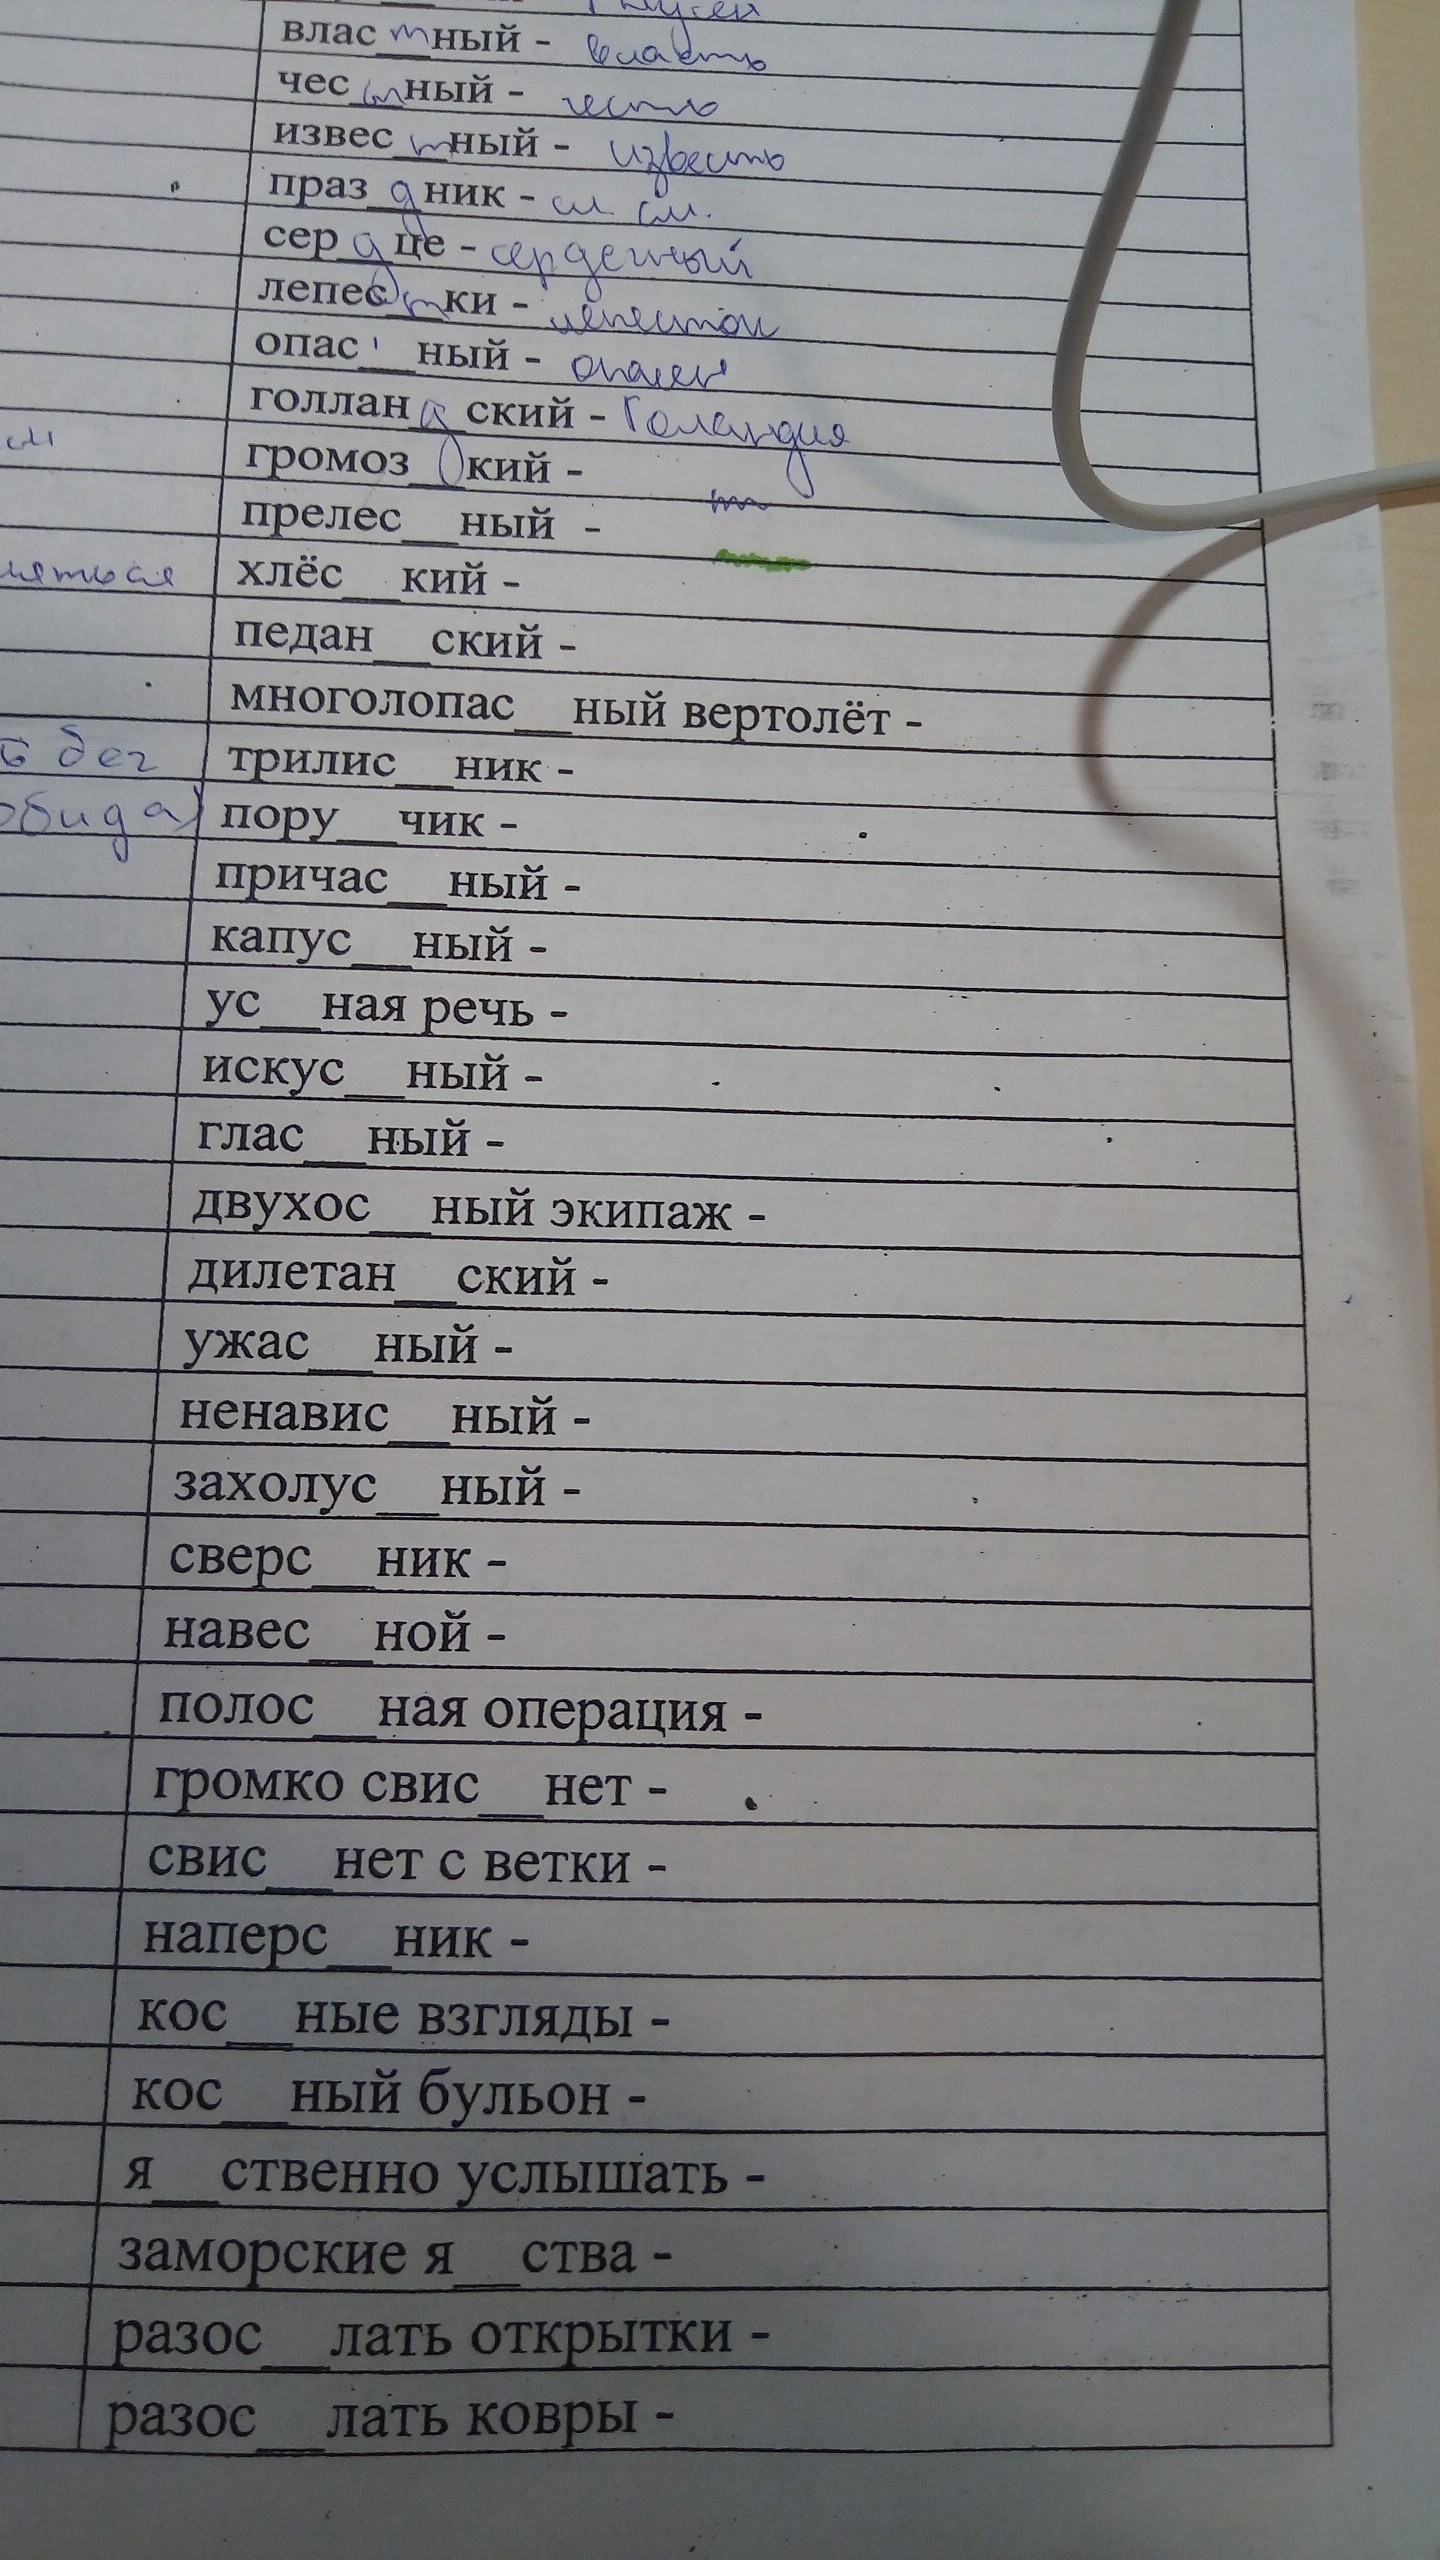 влас т ный - власть
чес т ный - честь
извес т ный - известь
праз д ник - сл. сл.
сер д це - сердечный
лепес т ки - лепесток
опас__ный - опасен
голлан д ский - Голандия
громоз д кий -
прелес__ный -
хлёс__кий -
педан__ский -
многолопас__ный вертолёт -
дег трилис__ник -
обида) пору__чик -
причас__ный -
капус__ный -
ус__ная речь -
искус__ный -
глас__ный -
двухос__ный экипаж -
дилетан__ский -
ужас__ный -
ненавис__ный -
захолус__ный -
сверс__ник -
навес__ной -
полос__ная операция -
громко свис__нет -
свис__нет с ветки -
наперс__ник -
кос__ные взгляды -
кос__ный бульон -
я__ственно услышать -
заморские я__ства -
разос__лать открытки -
разос__лать ковры -